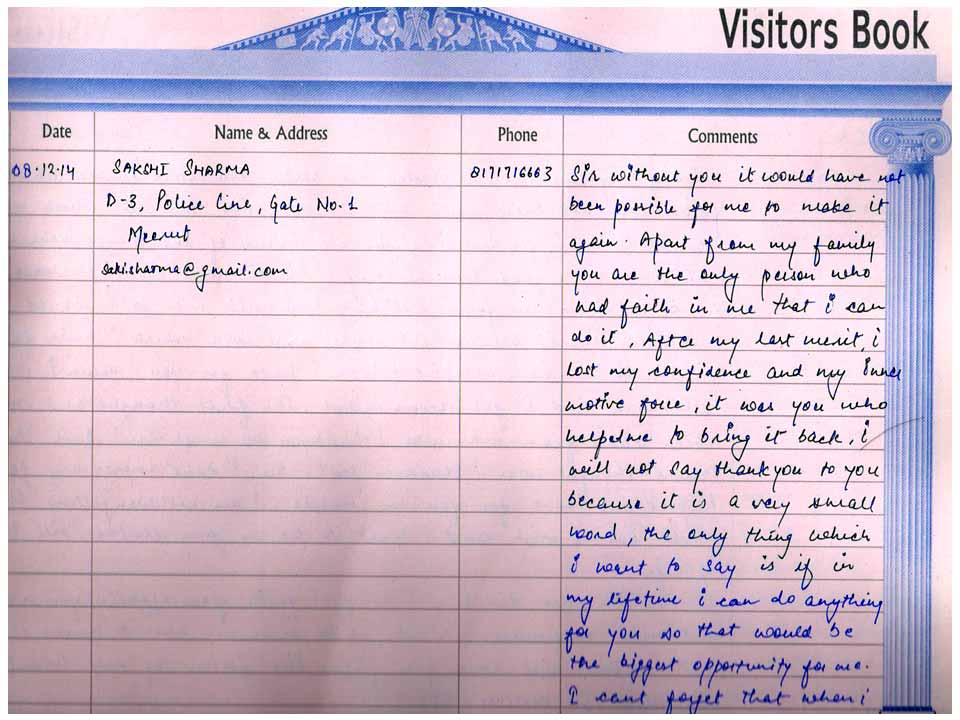 Visitors Book
Date Name & Address Phone Comments
08.12.14 SAKSHI SHARMA 8171716663 Sir without you it would have not
D-3, Police Line, Gate No. 1 been possible for me to make it
Meerut again. Apart from my family
saki.sharma@gmail.com you are the only person who
had faith in me that i can
do it, After my last merit, i
lost my confidence and my inner
motive force, it was you who
helpedme to bring it back, i
will not say thankyou to you
because it is a very small
word, the only thing which
i want to say is if in
my lifetime i can do anything
for you so that would be
the biggest opportunity for me.
I cant forget that when i